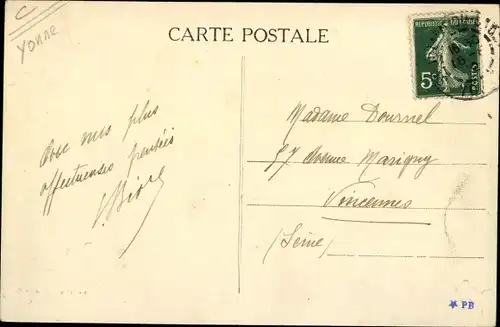 C
Yonne
CARTE POSTALE
REPUBLIQUE FRANCAISE
5c
POSTES
Avec mes plus
affectueuses pensées
Madame Dournel
57 Avenue Marigny
Vincennes
(Seine)
PB